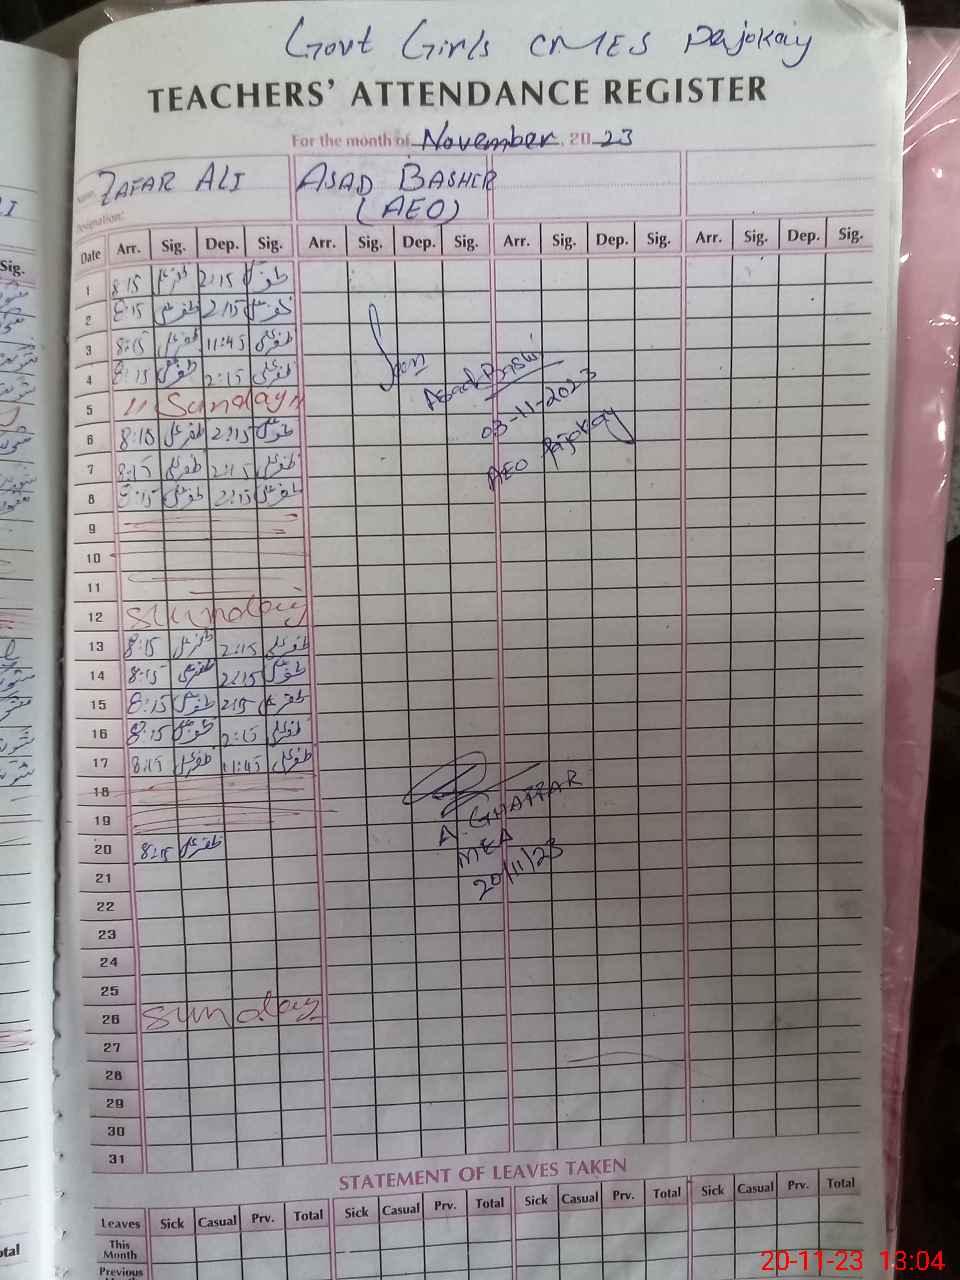 Govt Girls CMES Pajokay
TEACHERS' ATTENDANCE REGISTER
For the month of November, 20 23
Name: ZAFAR ALI ASAD BASHIR
Designation: (AEO)
Date Arr. Sig. Dep. Sig. Arr. Sig. Dep. Sig. Arr. Sig. Dep. Sig. Arr. Sig. Dep. Sig.
1 8:15 ظفر علی 2:15 ظفر علی
2 8:15 ظفر علی 2:15 ظفر علی
3 8:15 ظفر علی 11:45 ظفر علی
4 8:15 ظفر علی 2:15 ظفر علی
5 " Sunday "
6 8:15 ظفر علی 2:15 ظفر علی
7 8:15 ظفر علی 2:15 ظفر علی
8 8:15 ظفر علی 2:15 ظفر علی
03-11-2023
AEO Pajokay
9
10
11
12 Sunday
13 8:15 ظفر علی 2:15 ظفر علی
14 8:15 ظفر علی 2:15 ظفر علی
15 8:15 ظفر علی 2:15 ظفر علی
16 8:15 ظفر علی 2:15 ظفر علی
17 8:15 ظفر علی 11:45 ظفر علی
18
19
20 8:15 ظفر علی
A. GHAFFAR
MEA
20/11/23
21
22
23
24
25
26 Sunday
27
28
29
30
31
STATEMENT OF LEAVES TAKEN
Leaves Sick Casual Prv. Total Sick Casual Prv. Total Sick Casual Prv. Total Sick Casual Prv. Total
This Month
Previous
20-11-23 13:04